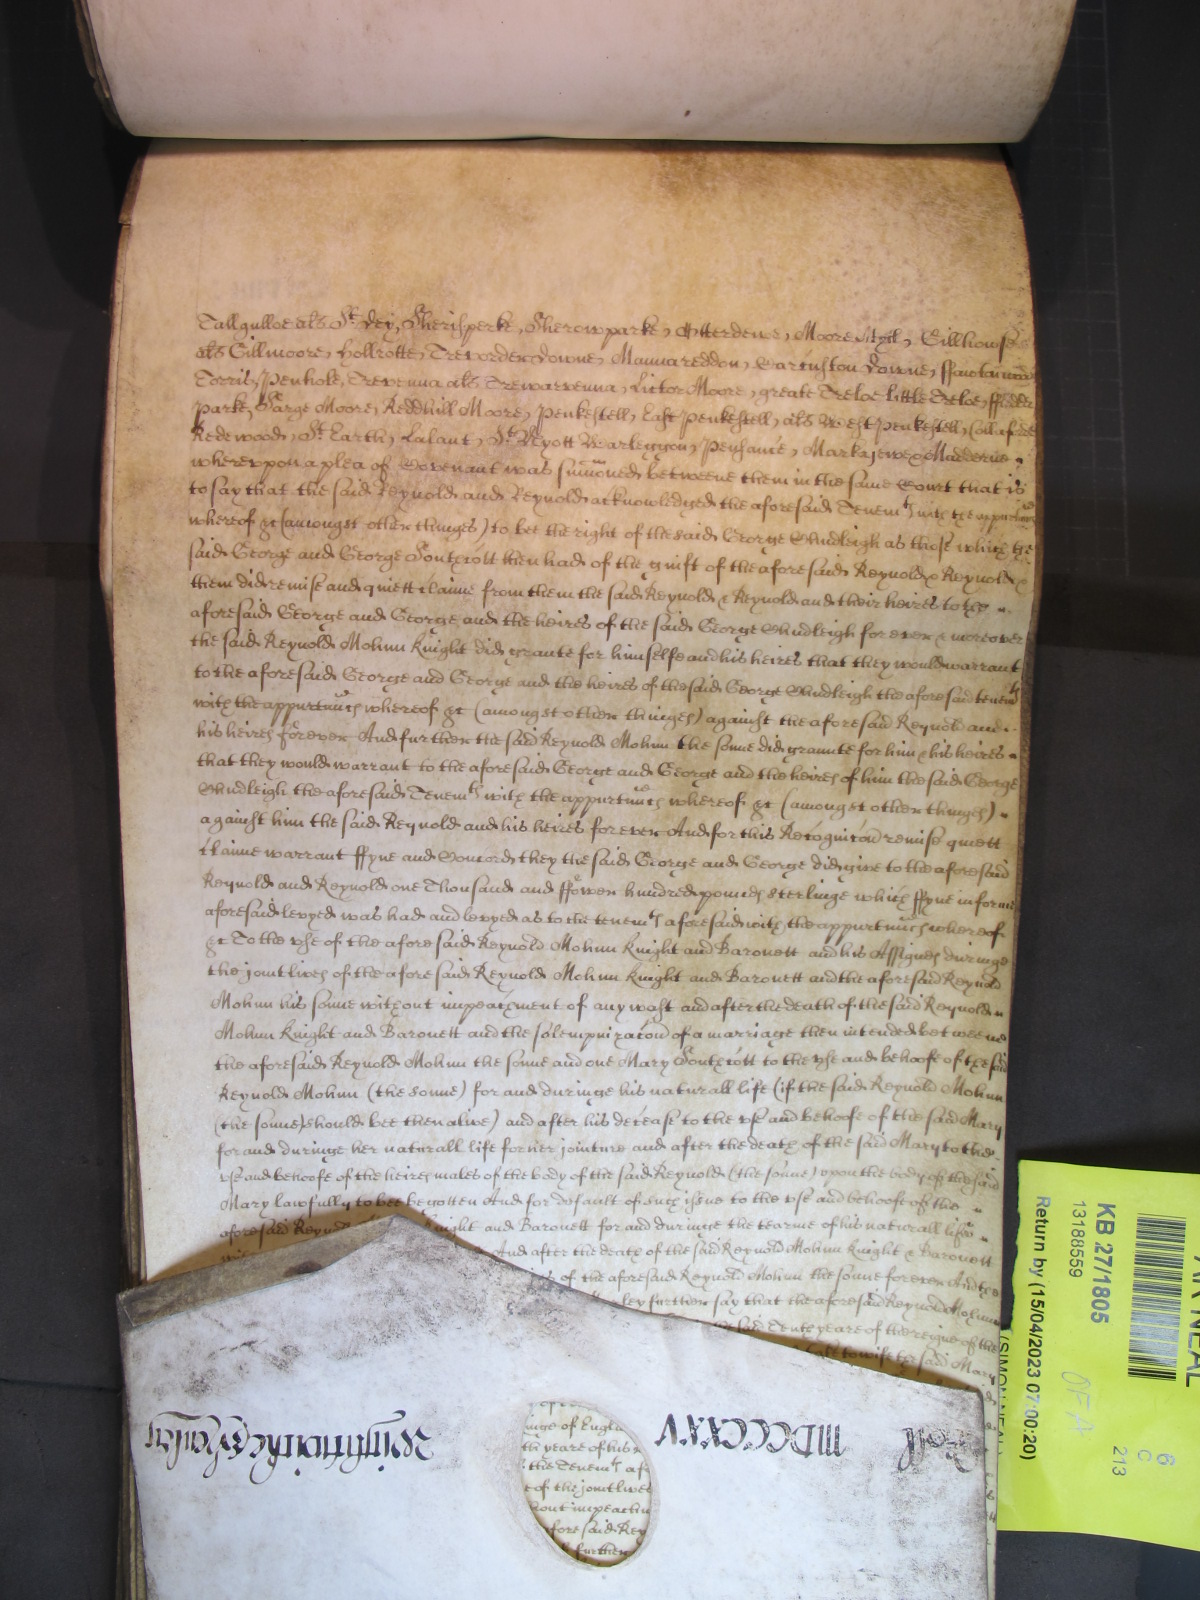 Tallgulloe als St Dey, Sherisperke, Sherowparke, Otterdene, Moore Myll, Gillhouse
als Gillmoore, Hollrotte, Treworder Downe, Mannareddon, Downe,
Torris, Penhole, Trevenna als Trewarvenna, Lictor Moore, greate Treloe little Treloe,
Parke, Large Moore, Reddhill Moore, Penkestell, East Penkestell, als West Penkestell,
Redewood, St Earth, Lalant, St Nyott Warleggon, Penhanie, Markajewe & Madderne
whereupon a plea of Covenant was sumoned betweene them in the same Court that is
to say that the said Reynold and Reynold acknowledged the aforesaid Tenemts with the appurtnces
whereof &c (amongst other thinges) to bee the right of the said George Chudleigh as those which the
said George and George Southcott then had of the guift of the aforesaid Reynold & Reynold &
them did remise and quiett claime from them the said Reynold & Reynold and their heires to the
aforesaid George and George and the heires of the said George Chudleigh for ever & moreover
the said Reynold Mohun Knight did graunte for himselfe and his heires that they would warrant
to the aforesaid George and George and the heires of the said George Chudleigh the aforesaid tenemts
with the appurtnces whereof &c (amongst other thinges) against the aforesaid Reynold and
his heires forever And further the said Reynold Mohun the sonne did graunte for him & his heires
that they would warrant to the aforesaid George and George and the heires of him the said George
Chudleigh the aforesaid Tenemts with the appurtnces whereof &c (amongst other thinges)
against him the said Reynold and his heires forever And for this Recognicon remise quiett
claime warrant ffyne and Concord they the said George and George did give to the aforesaid
Reynold and Reynold one Thousand and ffower hundred pounds sterlinge which ffyne in forme
aforesaid levyed was had and levyed as to the tenemts aforesaid with the appurtnces whereof
&c To the use of the aforesaid Reynold Mohun Knight and Baronett and his Assignes duringe
the joint lives of the aforesaid Reynold Mohun Knight and Baronett and the aforesaid Reynold
Mohun his sonne without impeachment of any wast and after the death of the said Reynold
Mohun Knight and Baronett and the solempnizacon of a marriage then intended betweene
the aforesaid Reynold Mohun the sonne and one Mary Southcott to the use and behoofe of the said
Reynold Mohun (the sonne) for and duringe his naturall life (if the said Reynold Mohun
(the sonne) should bee then alive) and after his decease to the use and behoofe of the said Mary
for and duringe her naturall life for her jointure and after the death of the said Mary to the
use and behoofe of the heires males of the body of the said Reynold (the sonne) upon the body of the said
Mary lawfully to bee begotten And for default of such issue to the use and behoofe of the
aforesaid Reynold Knight and Baronett for and duringe the tearme of his naturall life
And after the death of the said Reynold Mohun Knight & Baronett
of the aforesaid Reynold Mohun the sonne forever And the
further say that the aforesaid Reynold Mohun
said Tenth yeare of the reigne of the
to wife the said Mary
Roll
MDCCCXXV
of Engl
th yeare of his
the Tenemts af
of the joint lives
out impeachm
fore said Rey
further
KB 27/1805
13188559
Return by (15/04/2023 07:00:20)
(SIMON NEAL)
NEAL
6
C
213